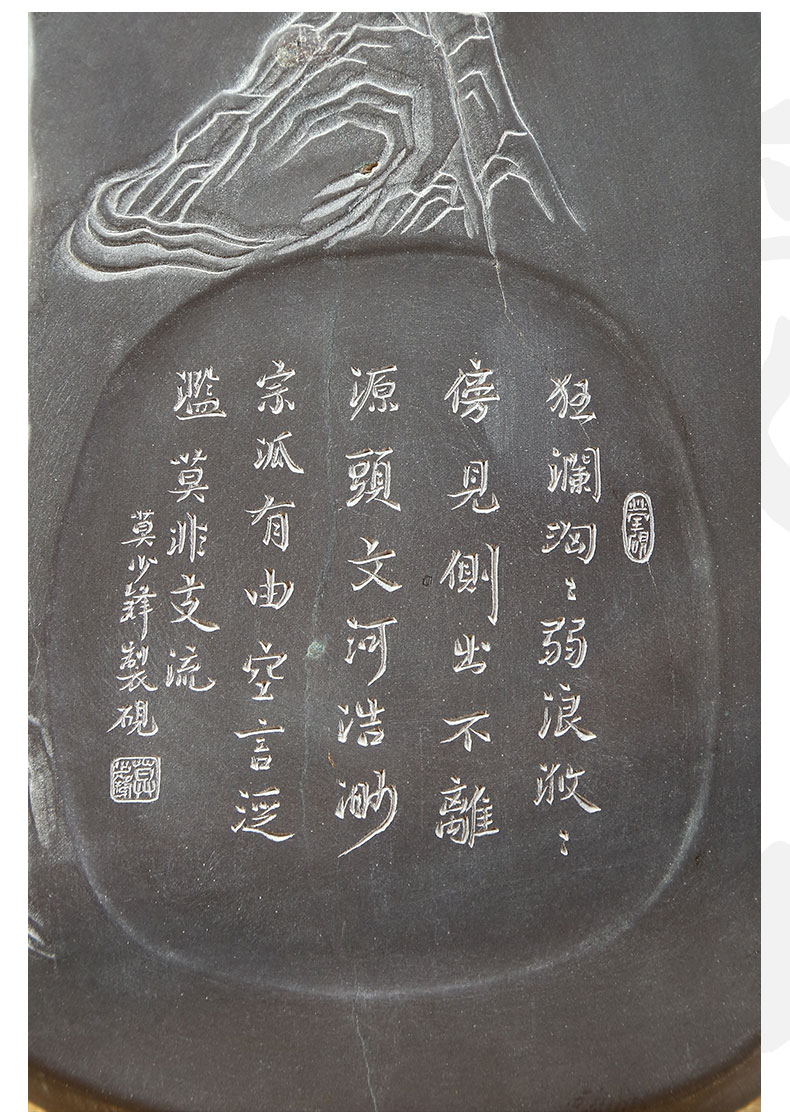 狂瀾洶〻弱浪浟〻
傍見側出不離
源頭文河浩渺
宗派有由空言泛
濫莫非支流
莫少鋒製硯